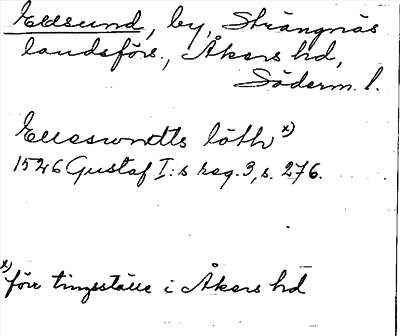 Edesund, by, Strängnäs
landsförs., Åkers hd,
Söderm. l.
Edesswndtts löth x)
1526 Gustaf I:s reg. 3, s. 276.
x) förr tingsställe i Åkers hd